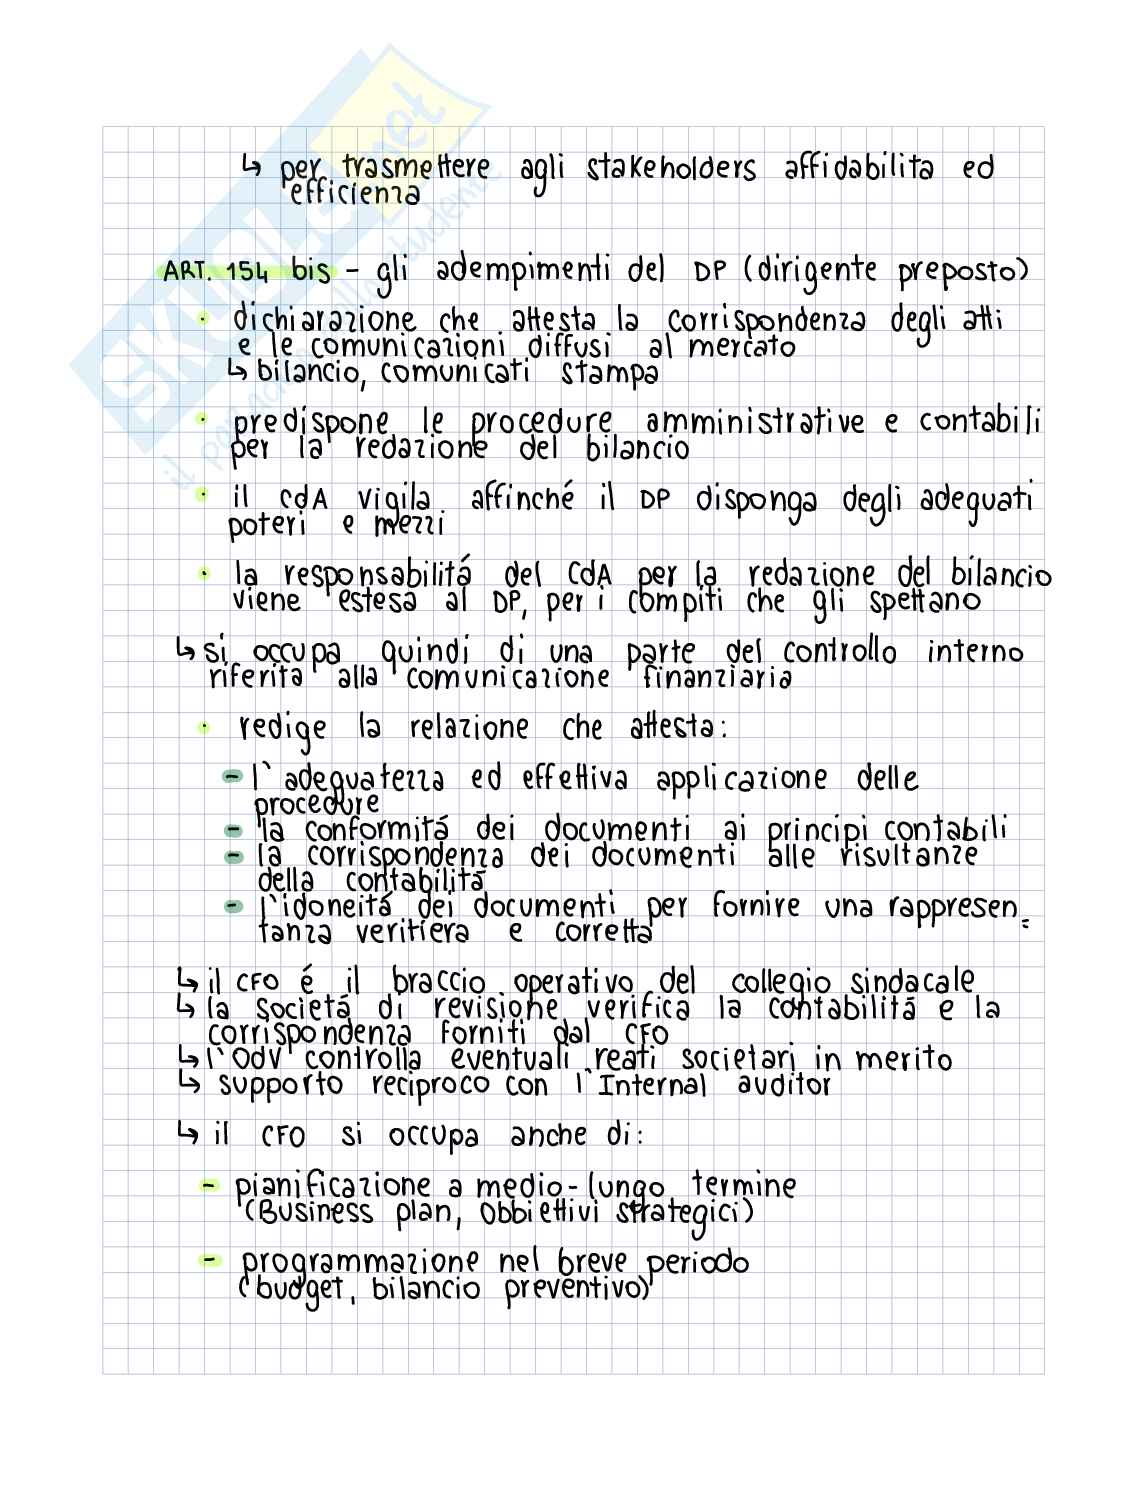 ↳ per trasmettere agli stakeholders affidabilita ed
efficienza
ART. 154 bis - gli adempimenti del DP (dirigente preposto)
· dichiarazione che attesta la corrispondenza degli atti
e le comunicazioni diffusi al mercato
↳ bilancio, comunicati stampa
· predispone le procedure amministrative e contabili
per la redazione del bilancio
· il CdA vigila affinché il DP disponga degli adeguati
poteri e mezzi
· la responsabilitá del CdA per la redazione del bilancio
viene estesa al DP, per i compiti che gli spettano
↳ si occupa quindi di una parte del controllo interno
riferita alla comunicazione finanziaria
· redige la relazione che attesta:
- l'adeguatezza ed effettiva applicazione delle
procedure
- la conformitá dei documenti ai principi contabili
- la corrispondenza dei documenti alle risultanze
della contabilitá
- l'idoneitá dei documenti per fornire una rappresen=
tanza veritiera e corretta
↳ il CFO é il braccio operativo del collegio sindacale
↳ la societá di revisione verifica la contabilitá e la
corrispondenza forniti dal CFO
↳ l'OdV controlla eventuali reati societari in merito
↳ supporto reciproco con l'Internal auditor
↳ il CFO si occupa anche di:
- pianificazione a medio-lungo termine
(Business plan, obbiettivi strategici)
- programmazione nel breve periodo
(budget, bilancio preventivo)
SKUOLA.net